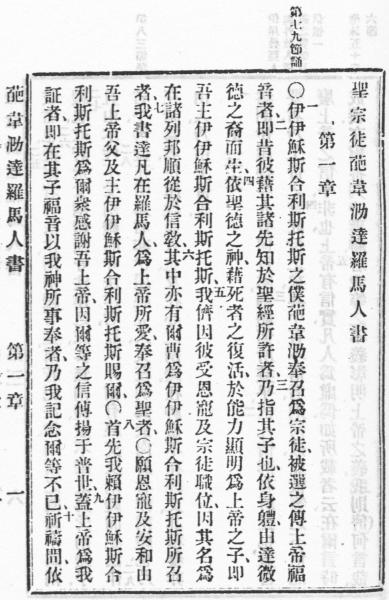 第七九節誦
聖宗徒葩韋泐達羅馬人書
第一章
〇伊伊穌斯合利斯托斯之僕葩韋泐奉召爲宗徒被選之傳上帝福
音者即昔彼藉其諸先知於聖經所許者乃指其子也依身體由達微
德之裔而生依聖德之神藉死者之復活於能力顯明爲上帝之子即
吾主伊伊穌斯合利斯托斯我儕因彼受恩寵及宗徒職位因其名爲
在諸列邦順從於信教其中亦有爾曹爲伊伊穌斯合利斯托斯所召
者我書達凡在羅馬人爲上帝所愛奉召爲聖者〇願恩寵及安和由
吾上帝父及主伊伊穌斯合利斯托斯賜爾〇首先我賴伊伊穌斯合
利斯托斯爲爾衆感謝吾上帝因爾等之信傳揚于普世蓋上帝爲我
証者即在其子福音以我神所事奉者乃我記念爾等不已祈禱間依
葩韋泐達羅馬人書 第一章 一